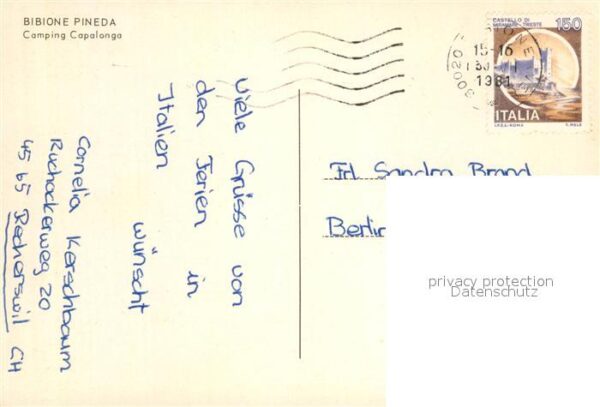 BIBIONE PINEDA
Camping Capalonga
CASTELLO DI
MIRAMARE-TRIESTE
150
15-16
1981
30020
ITALIA
I.P.Z.S.-ROMA
E. MELE
Viele Grüsse von
den Ferien in
Italien
wünscht
Cornelia Kerschbaum
Ruchackerweg 20
4565 Recherswil CH
Frl. Sandra Brand
Berlin
privacy protection
Datenschutz